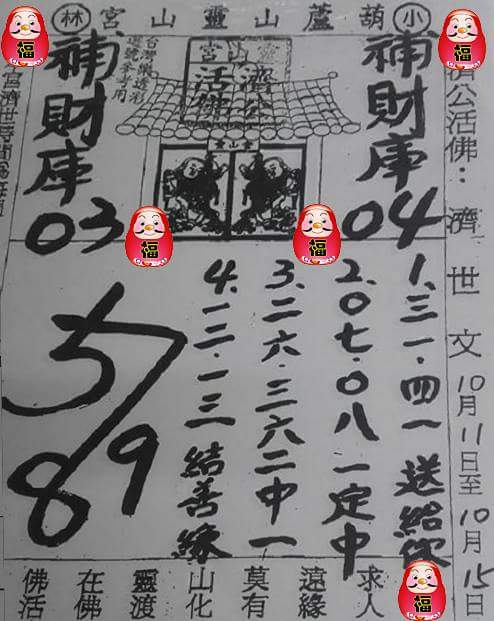 小葫蘆山靈山宮林
濟公活佛：濟世文10月11日至10月15日
補財庫04
靈山宮
濟公活佛
靈山宮
補財庫03
1.三一.四一送給你
2.0七.0八一定中
3.二六.三六二中一
4.一二.一三結善緣
5/89
佛在靈山莫遠求
活佛渡化有緣人
福
福
福
福
福